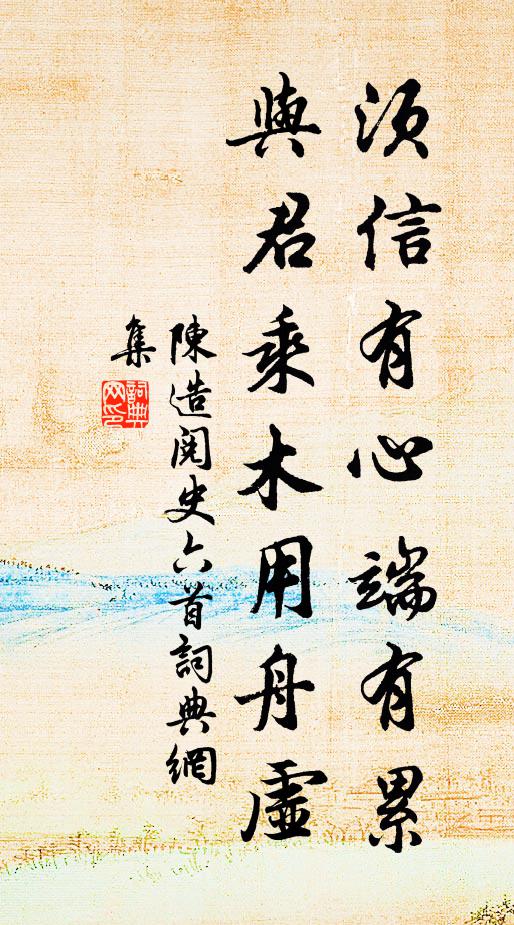 須信有心端有累
與君乘木用舟虛
陳造閱史六首詞典網
集
詞典
网印